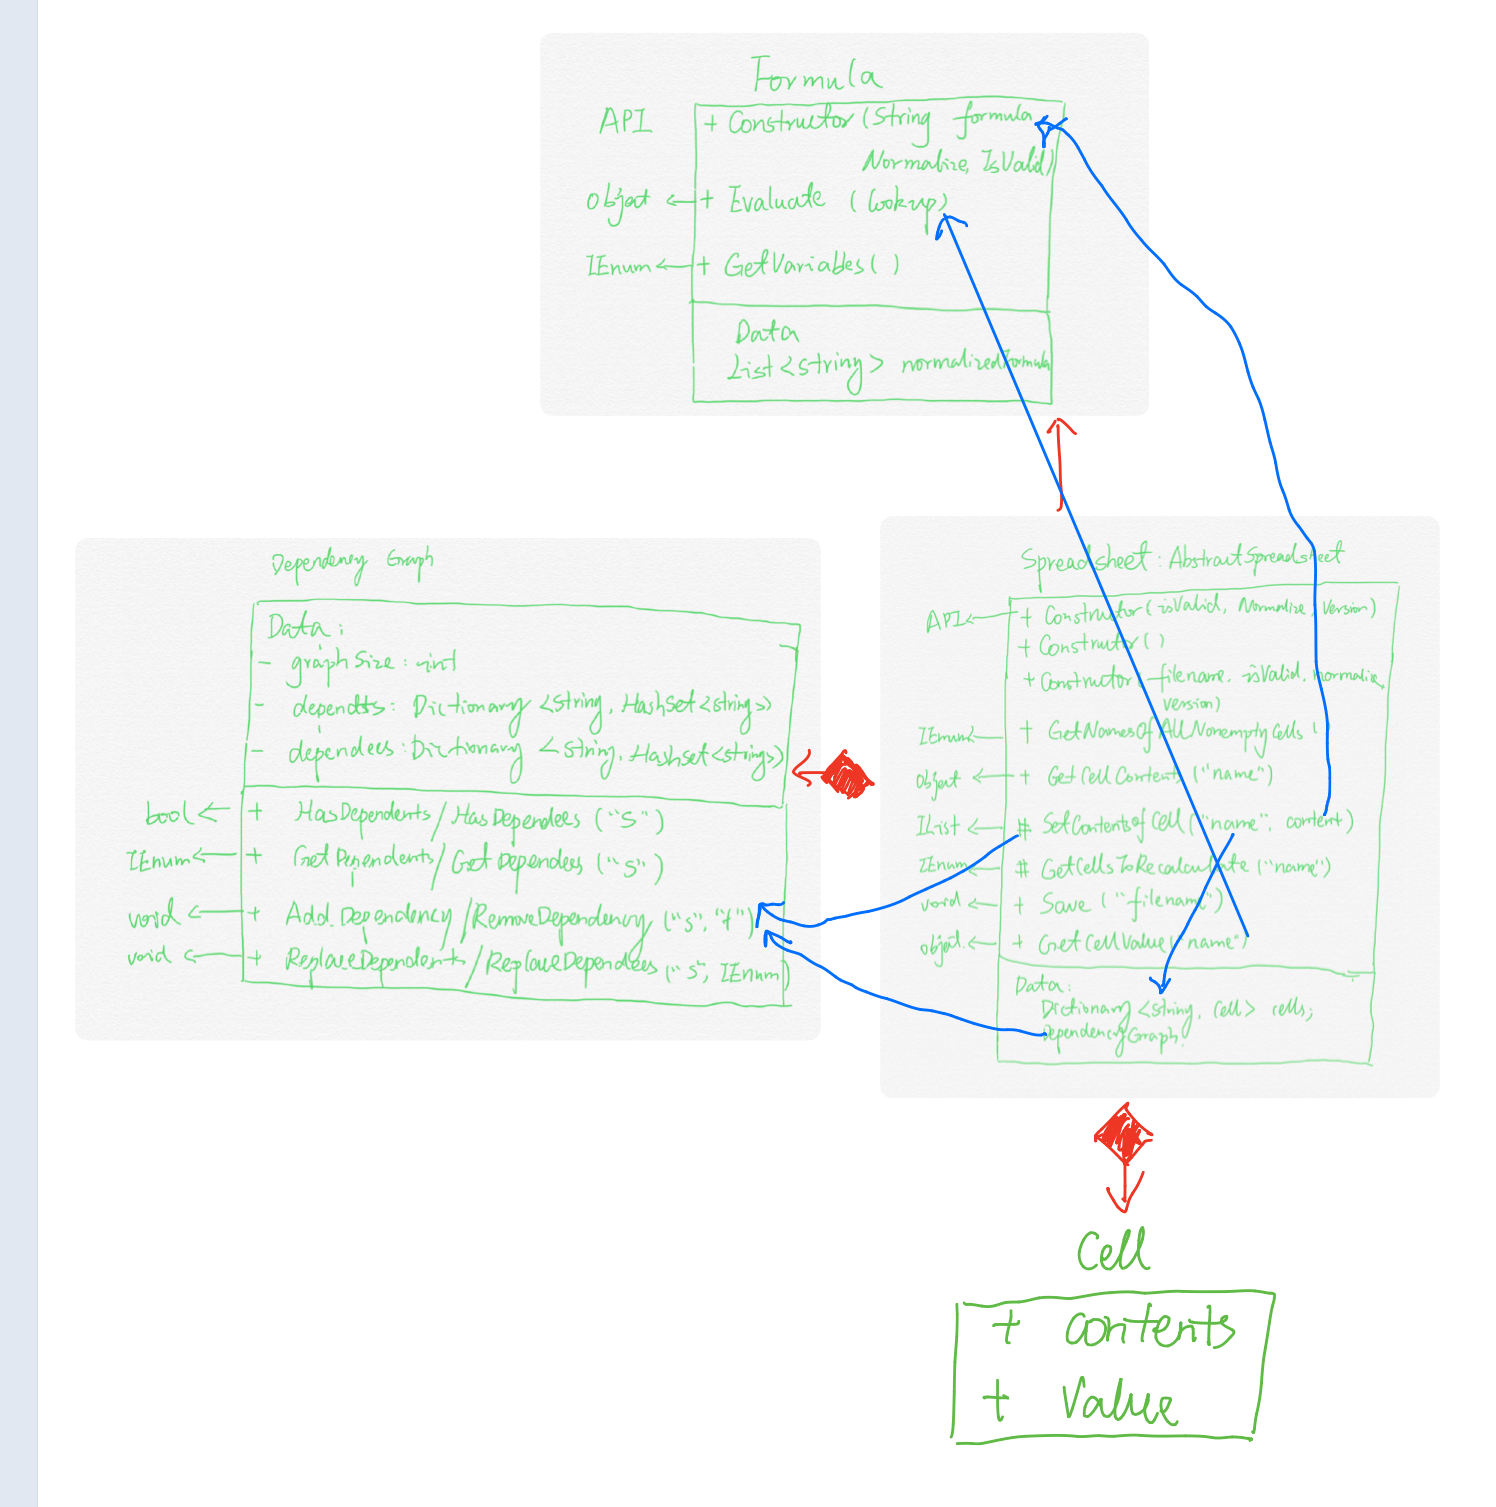 Formula
API
+ Constructor (String formula
Normalize, IsValid)
Object ← + Evaluate (Lookup)
IEnum ← + GetVariables ( )
Data
List <string> normalizedFormula
Dependency Graph
Data :
- graphSize : int
- depends: Dictionary <String, HashSet<string>>
- dependees: Dictionary <string, Hashset<strings>>
bool ← + HasDependents / HasDependees ("S")
IEnum ← + Get Dependents / Get Dependees ("S")
void ← + Add. Dependency / RemoveDependency ("s", "t")
void ← + ReplaceDependents / ReplaceDependees ("s", IEnum)
Spreadsheet : AbstractSpreadsheet
API ← + Constructor (isValid, Normalize, Version)
+ Constructor ( )
+ Constructor filename, isValid, normalize,
version)
IEnum ← + GetNamesOfAllNonemptyCells (
object ← + GetCellContents ("name")
IList ← # SetContentsofCell ("name", content)
IEnum ← # GetCellsToRecalculate ("name")
void ← + Save ("filename")
object. ← + GetCellValue ("name")
Data :
Dictionary <string, Cell> cells;
DependencyGraph.
Cell
+ contents
+ Value